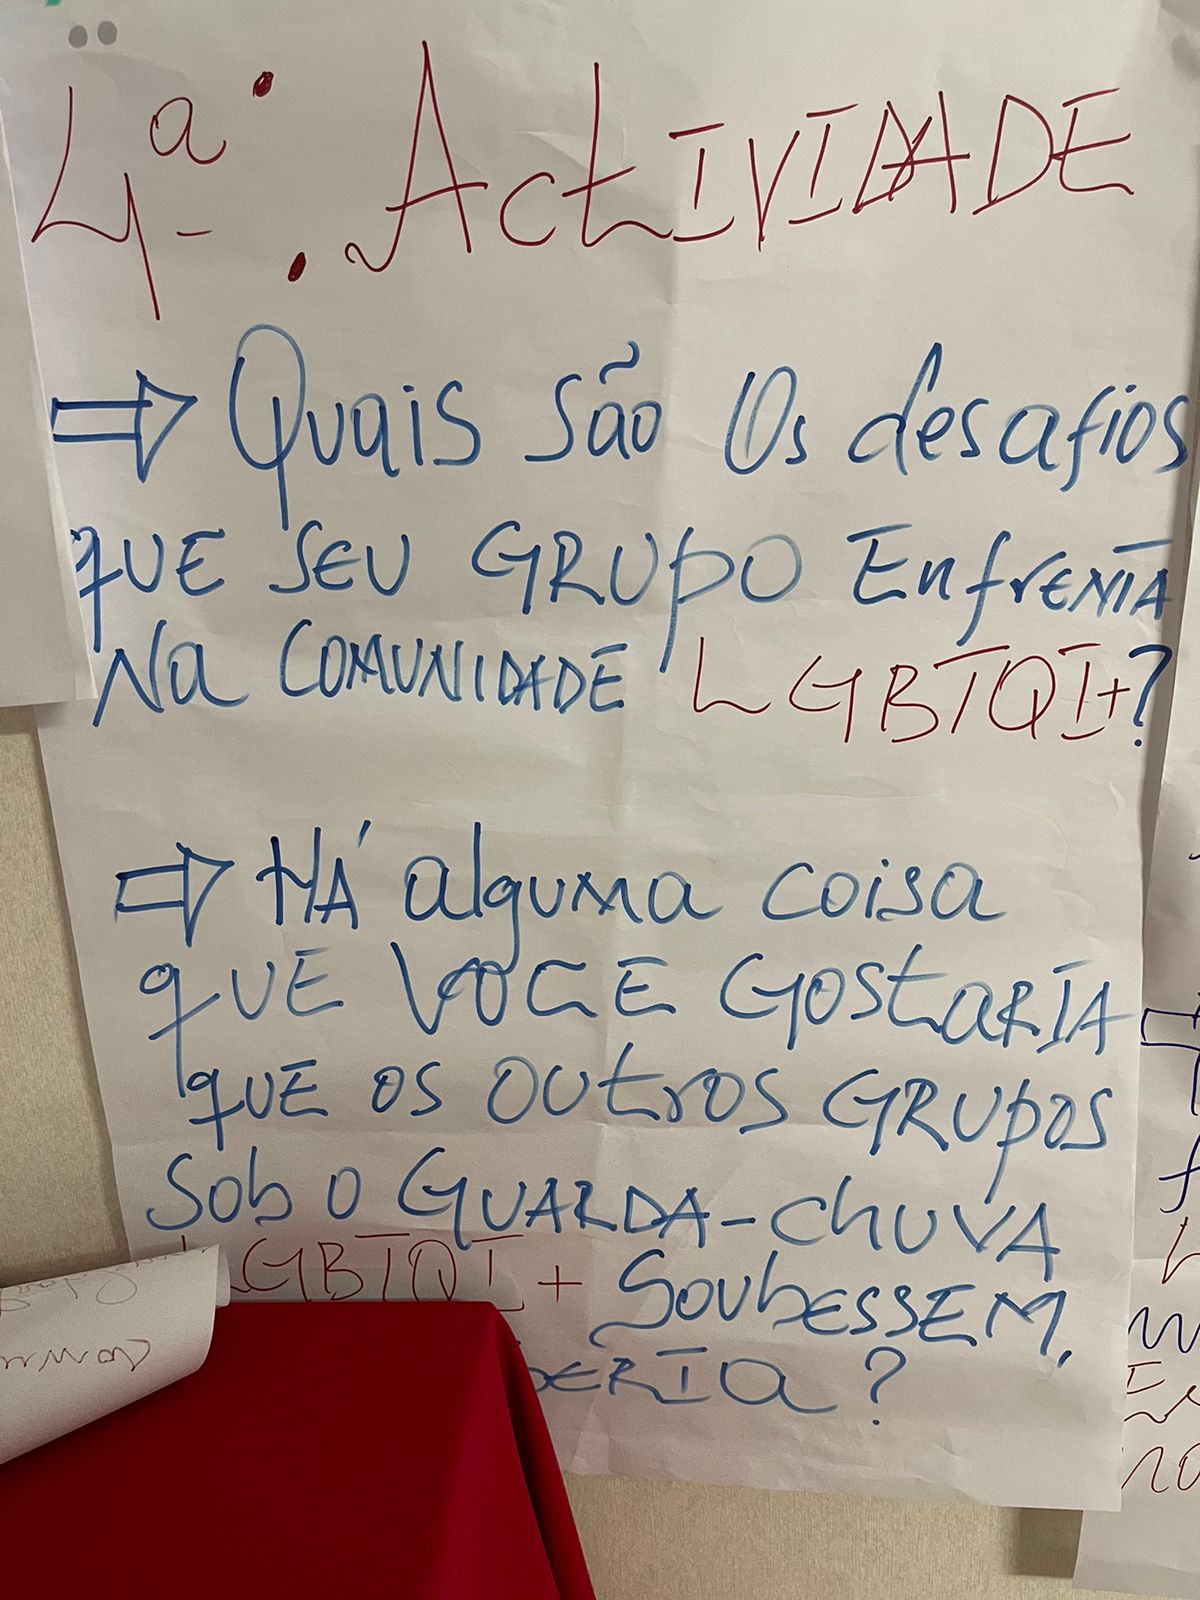 4ª: Actividade
⇨ Quais são os desafios
que seu GRUPO Enfrenta
Na COMUNIDADE LGBTQI+?
⇨ HÁ alguma coisa
que VOCE GOStaRIA
que os outros GRUPOS
Sob o GUARDA-chuVA
LGBTQI+ SoubESSEM,
DERIA?